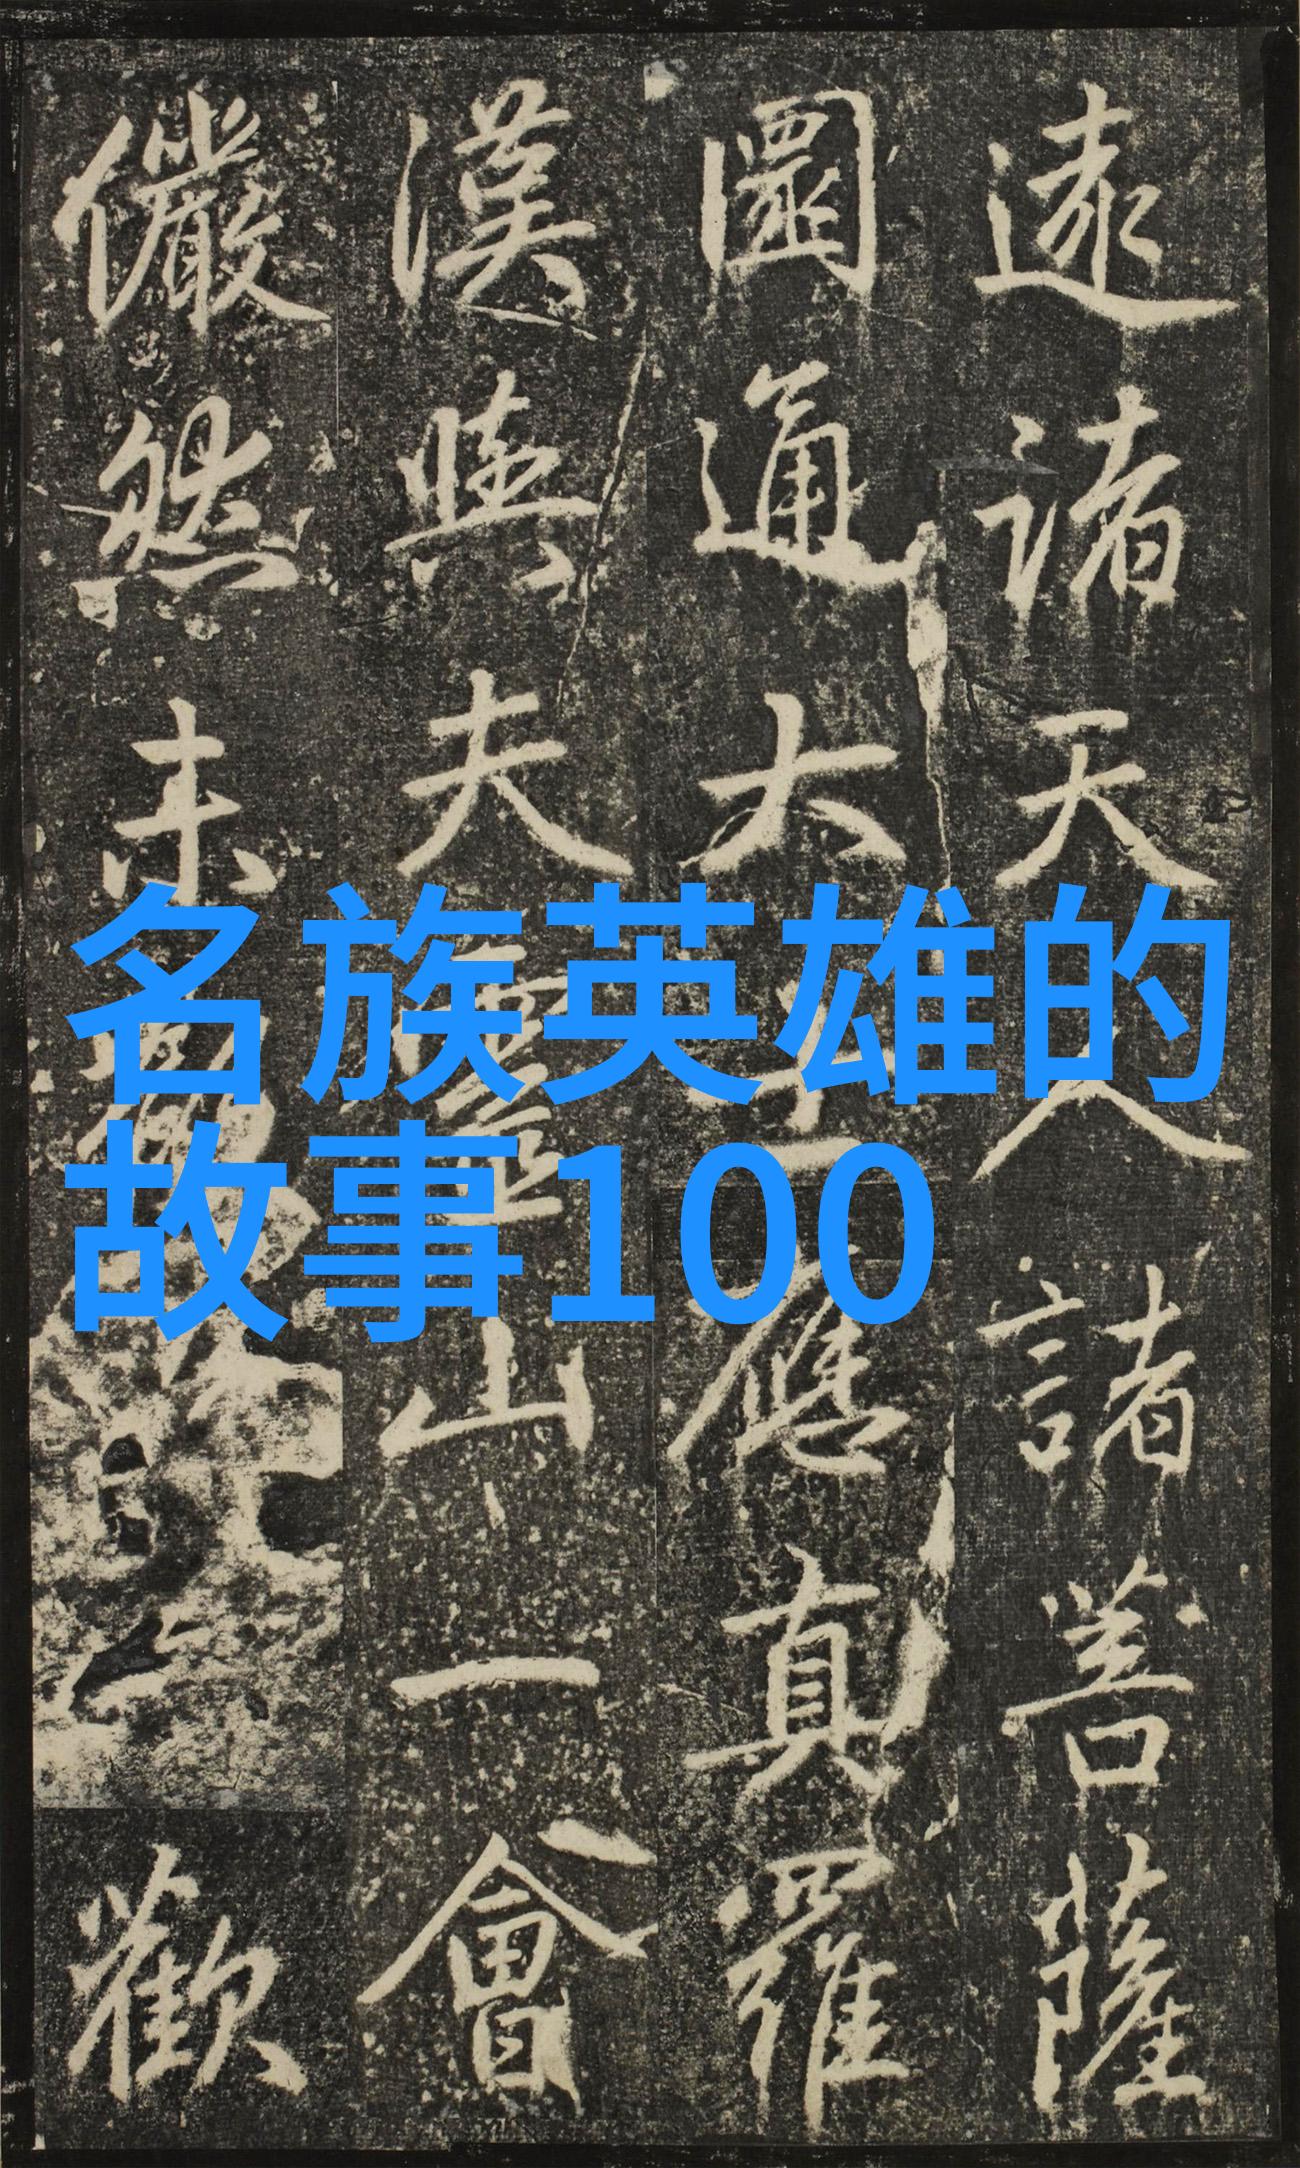 遠諸天人諸菩薩
圜通大士應真羅
漢與夫靈山一會
儼然未歡
名族英雄的
故事100